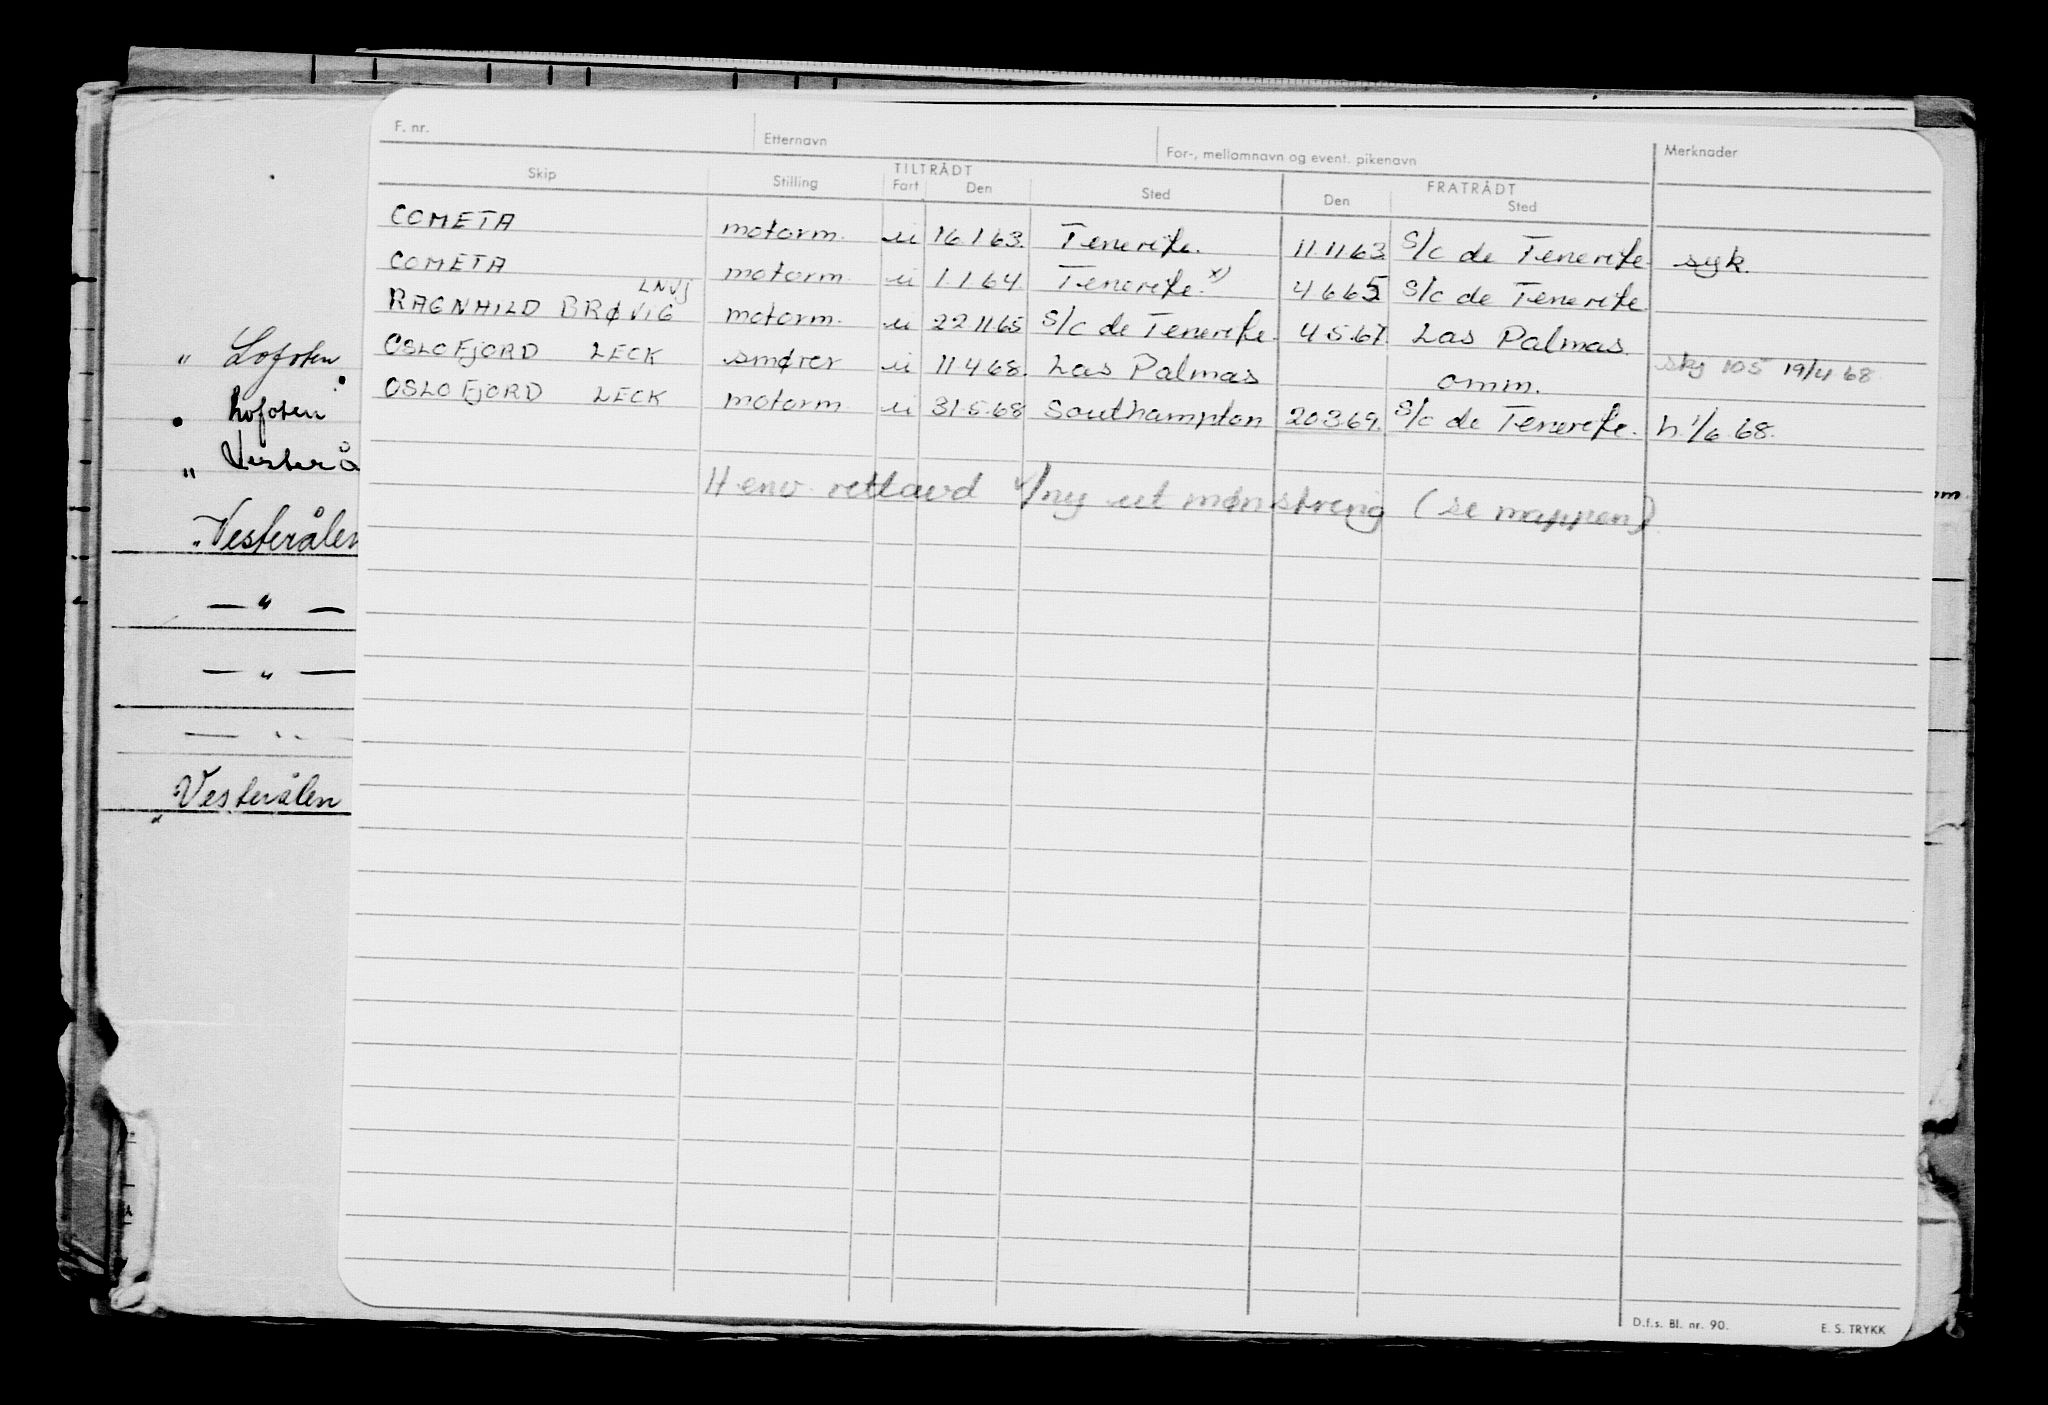 F. nr. Etternavn For-, mellomnavn og event. pikenavn Merknader
TILTRÅDT FRATRÅDT
Skip Stilling Fart Den Sted Den Sted
COMETA motorm. u 16.1.63. Tenerife. 11.11.63 S/c de Tenerife syk.
COMETA motorm. u 1.1.64. Tenerife. x) 4 6 65 S/c de Tenerife
LNVJ
RAGNHILD BRØVIG motorm. u 22 11 65 S/c de Tenerife. 4.5.67. Las Palmas.
OSLOFJORD LECK smører u 11.4 68. Las Palmas omm. skj 105 19/4 68
OSLOFJORD LECK motorm u 31.5.68 Southampton 20.3.69. S/c de Tenerife. h. 1/6 68.
H env. retlavd v/ny ut mønstring (se mappen).
" Lofoten
" Lofoten
" Vesterå
Vesterålen
— " —
— " —
— " —
Vesterålen
D.f.s. Bl. nr. 90. E. S. TRYKK